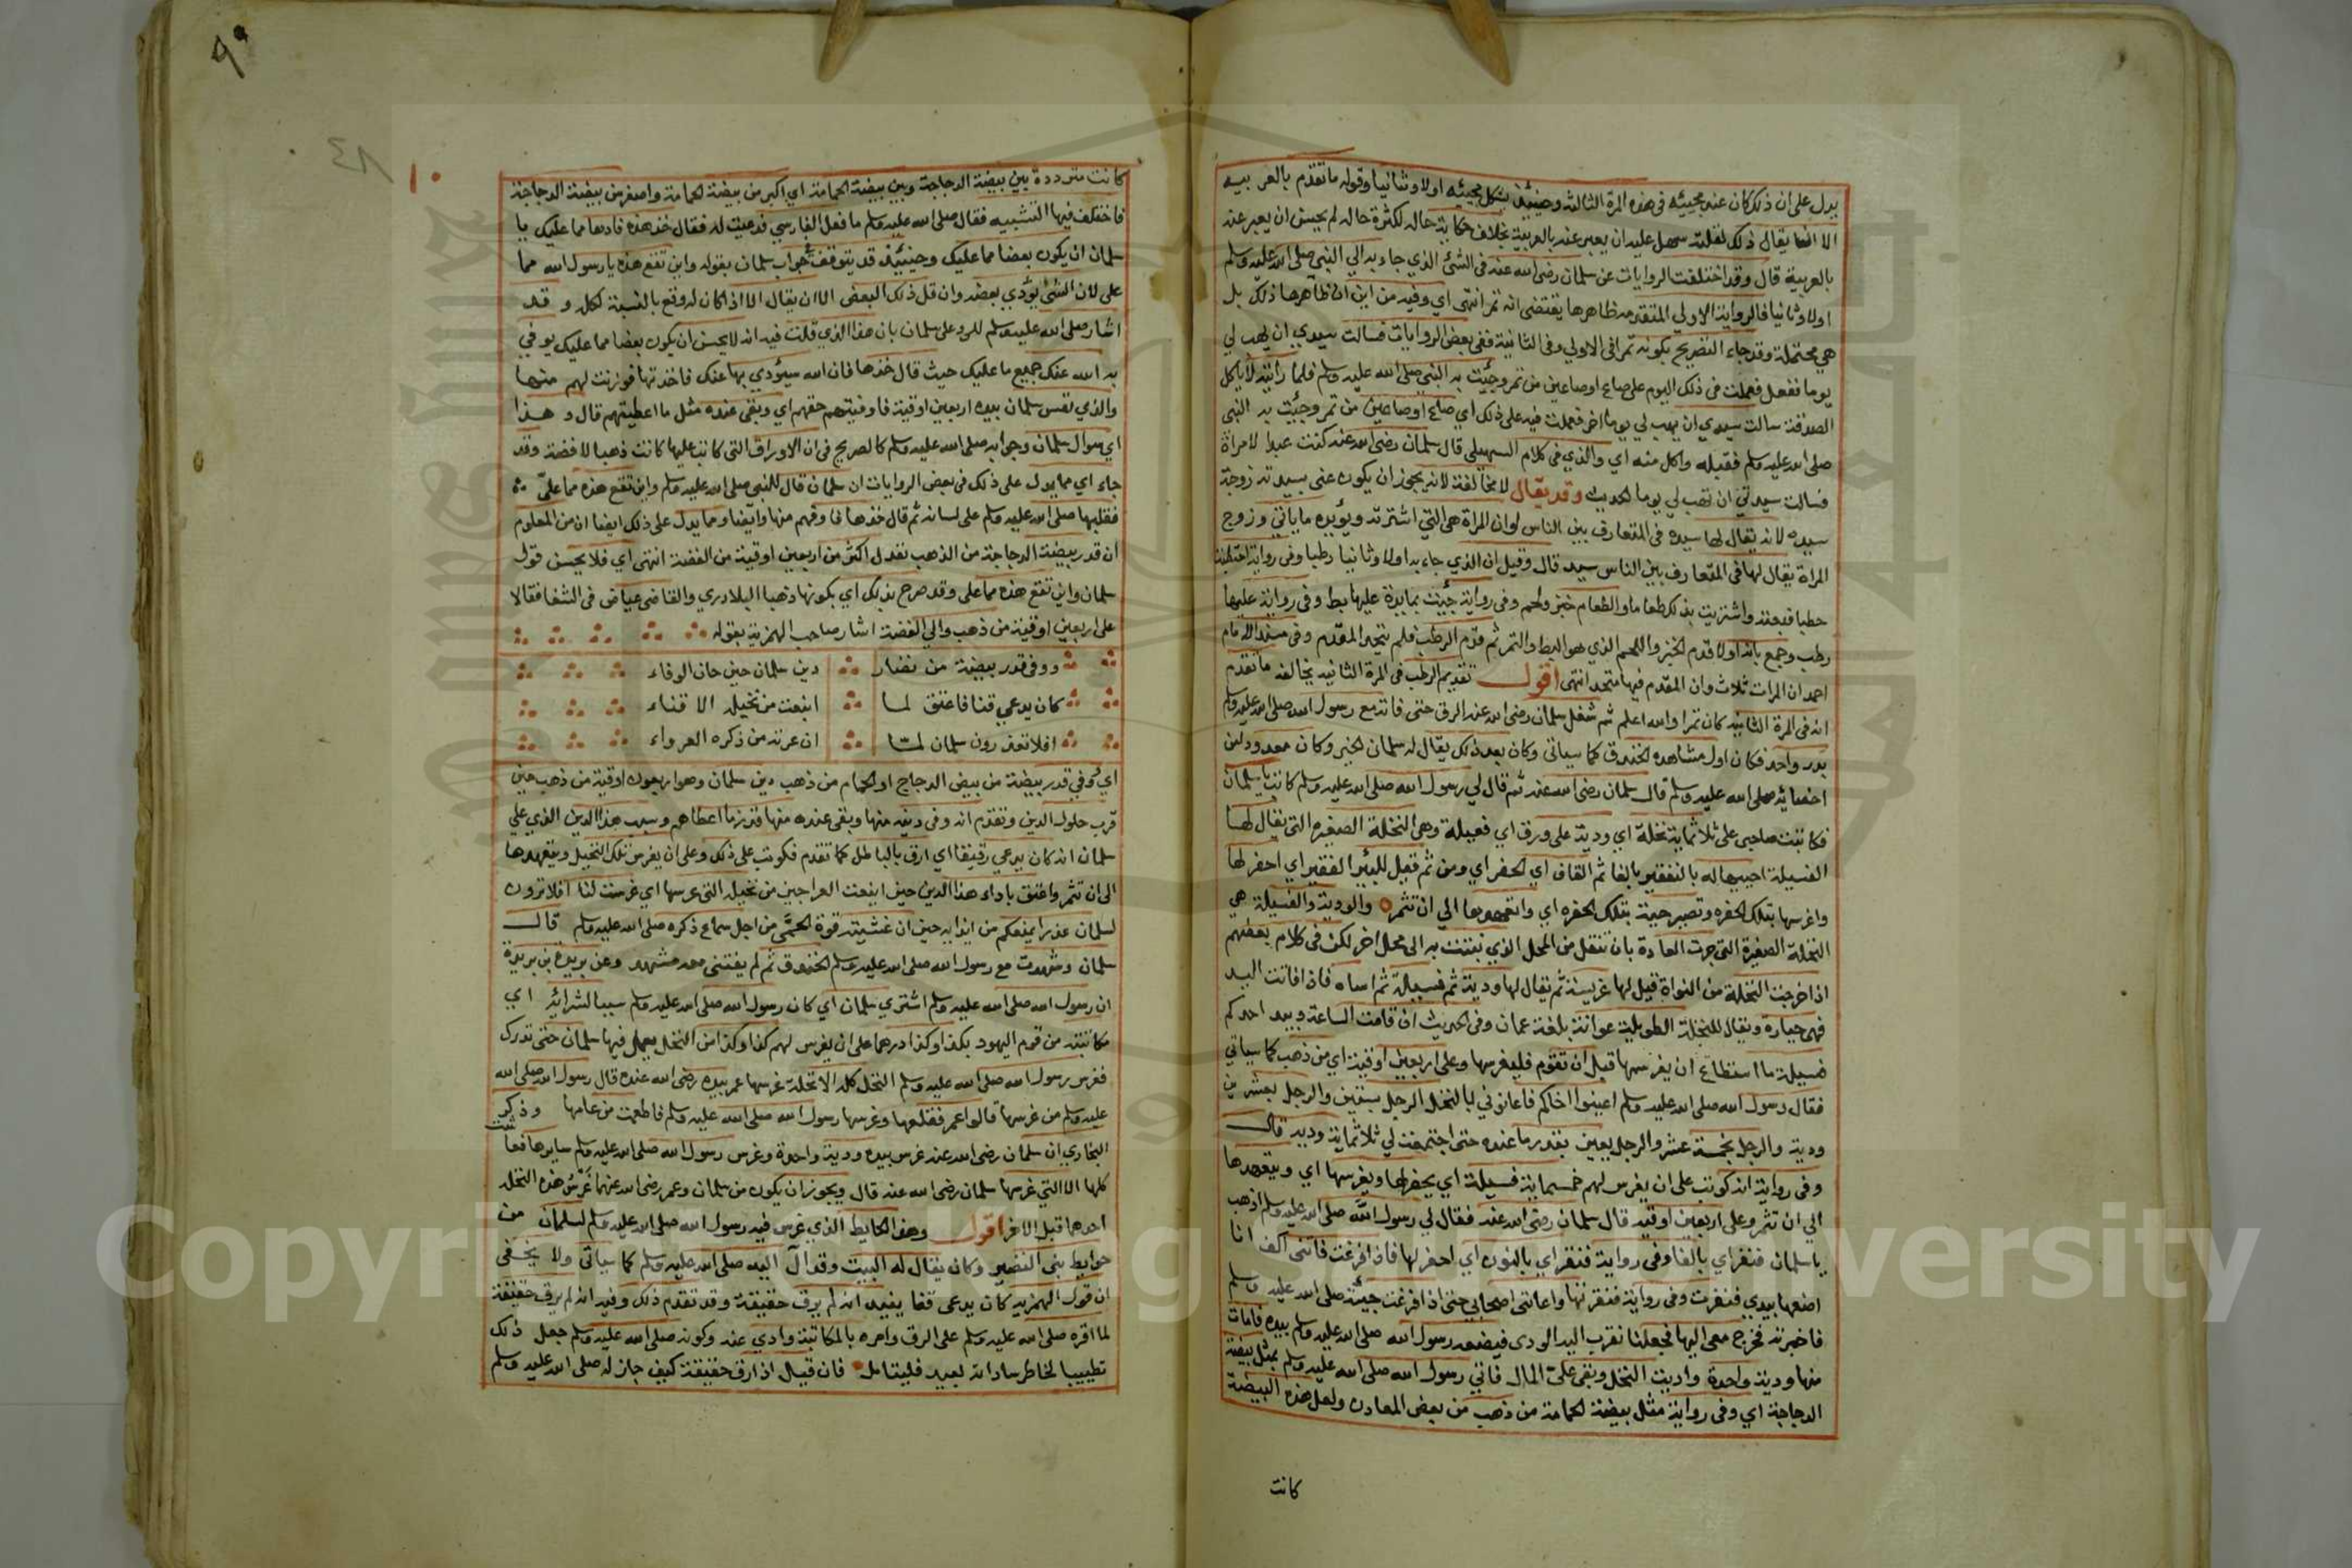 يدل على ان ذلك كان عند مجيئه فى هذه المرة الثالثة وحينئذ يشكل مجيئه اولا وثانيا وقوله ما تقدم بالعربية
الا ان يقال ذلك لقلته سهل عليه ان يعبر عنه بالعربية بخلاف حكاية حاله لكثرة حاله لم يحسن ان يعبر عنه
بالعربية قال وقد اختلفت الروايات عن سلمان رضى الله عنه فى الشئ الذي جاء به الي النبي صلى الله عليه وسلم
اولا وثانيا فالرواية الاولي المتقدمة ظاهرها يقتضى انه تمر انتهى اي وفيه من اين ان ظاهرها ذلك بل
هي محتملة وقد جاء التصريح بكونه تمرا فى الاولي وفى الثانية ففى بعض الروايات فسالت سيدي ان يهب لي
يوما ففعل فعملت فى ذلك اليوم على صاع اوصاعين من تمر وجئت به النبي صلى الله عليه وسلم فلما رايته لا ياكل
الصدقة سالت سيدي ان يهب لي يوما اخر فعملت فيه على ذلك اي صاع اوصاعين من تمر وجئت به النبي
صلى الله عليه وسلم فقبله واكل منه اي والذي فى كلام السهيلى قال سلمان رضى الله عنه كنت عبدا لامراة
فسالت سيدتي ان تهب لي يوما الحديث وقد يقال لا مخالفة لانه يجوز ان يكون عنى بسيدته زوجة
سيده لانه يقال لها سيدة فى المتعارف بين الناس لوان المراة هي التي اشترته ويؤيده ما ياتي وزوج
المراة يقال لها فى المتعارف بين الناس سيد قال وقيل ان الذي جاء به اولا وثانيا رطبا وفى رواية احتطبت
حطبا فبعته واشتريت بذلك طعاما والطعام خبز ولحم وفى رواية جئت بمايدة عليها بط وفى رواية عليها
رطب وجمع بانه اولا قدم الخبز واللحم الذي هو البط والتمر ثم قدم الرطب فلم يتحد المقدم وفى مسند الامام
احمد ان المرات ثلاث وان المقدم فيها متحد انتهى اقول تقديم الرطب فى المرة الثانيه يخالفه ما تقدم
انه فى المرة الثانيه كان تمرا والله اعلم ثم شغل سلمان رضى الله عنه الرق حتى فاته مع رسول الله صلى الله عليه وسلم
بدر واحد فكان اول مشاهده الخندق كما سياتي وكان بعد ذلك يقال له سلمان الخير وكان معدود من
اخصائه صلى الله عليه وسلم قال سلمان رضى الله عنه ثم قال لي رسول الله صلى الله عليه وسلم كاتب يا سلمان
فكاتبت صاحبى على ثلاثماية نخلة اي ودية على ورق اي فعيلة وهى النخلة الصغيره التى يقال لها
الفسيلة احييها له بالتفقير بالفا ثم القاف اي الحفر اي ومن ثم قيل للبئر الفقير اي احفر لها
واغرسها بتلك الحفره وتصير حية بتلك الحفره اي واتعهدها الي ان تثمر والودية والفسيلة هي
النخلة الصغيرة التى جرت العادة بان تنقل من المحل الذي نبتت به الى محل اخر لكن فى كلام بعضهم
اذا خرجت النخلة من النواة قيل لها غريسة ثم يقال لها ودية ثم فسيلة ثم اساه فاذا فاتت اليد
فهى جبارة ويقال للنخلة الطويلة عوانة بلغة عمان وفى الحديث ان قامت الساعة وبيد احدكم
فسيلة ما استطاع ان يغرسها قبل ان تقوم فليغرسها وعلى اربعين اوقية اي من ذهب كما سياتي
فقال رسول الله صلى الله عليه وسلم اعينوا اخاكم فاعانوني لي بالنخل الرجل بستين والرجل بعشرين
ودية والرجل بخمسة عشر والرجل يعين بقدر ما عنده حتى اجتمعت لي ثلاثماية ودية قال
وفى رواية انه كوتب على ان يغرس لهم خمسماية فسيلة اي يحفر لها ويغرسها اي ويتعهدها
الي ان تثمر وعلى اربعين اوقيه قال سلمان رضى الله عنه فقال لي رسول الله صلى الله عليه وسلم اذهب
يا سلمان ففقر اي بالفا وفى رواية فنقر اي بالنون اي احفر لها فاذا فرغت فاتنى اكن انا
اضعها بيدي ففقرت وفى رواية فنقرتها واعانني اصحابى حتى اذا فرغت جئته صلى الله عليه وسلم
فاخبرته فخرج معى اليها فجعلنا نقرب اليه الودي فيضعه رسول الله صلى الله عليه وسلم بيده فامات
منها ودية واحدة واديت النخل وبقى علىّ المال فاتي رسول الله صلى الله عليه وسلم بمثل بيضة
الدجاجة اي وفى رواية مثل بيضة الحمامة من ذهب من بعض المعادن ولعل هذه البيضة
كانت
٩٠
٤٨
١٠
كانت مترددة بين بيضة الدجاجة وبين بيضة الحمامة اي اكبر من بيضة الحمامة واصغر من بيضة الدجاجة
فاختلف فيها التشبيه فقال صلى الله عليه وسلم ما فعل الفارسي فدعيت له فقال خذ هذه فادها مما عليك يا
سلمان ان يكون بعضا مما عليك وحينئذ قد يتوقف جواب سلمان بقوله واين تقع هذه يا رسول الله مما
علي لان الشئ يؤدي بعضه وان قل ذلك البعض الا ان يقال الا اذا كان له وقع بالنسبة لكله وقد
اشار صلى الله عليه وسلم للرد على سلمان بان هذا الذي قلت فيه انه لا يحسن ان يكون بعضا مما عليك يوفي
به الله عنك جميع ما عليك حيث قال خذها فان الله سيؤدي بها عنك فاخذتها فوزنت لهم منها
والذي نفس سلمان بيده اربعين اوقية فاوفيتهم حقهم اي وبقى عنده مثل ما اعطيتهم قال وهذا
اي سوال سلمان وجوابه صلى الله عليه وسلم كالصريح فى ان الاوراق التى كاتب عليها كانت ذهبا لا فضة وقد
جاء اي مما يدل على ذلك فى بعض الروايات ان سلمان قال للنبي صلى الله عليه وسلم واين تقع هذه مما علىّ
فقلبها صلى الله عليه وسلم على لسانه ثم قال خذها فاوفهم منها وايضا ومما يدل على ذلك ايضا ان من المعلوم
ان قدر بيضة الدجاجة من الذهب تعدل اكثر من اربعين اوقية من الفضة انتهى اي فلا يحسن قول
سلمان واين تقع هذه مما على وقد صرح بذلك اي بكونها ذهبا البلاذري والقاضى عياض فى الشفا فقالا
على اربعين اوقية من ذهب والي القصة اشار صاحب الهمزية بقوله
ووفى قدر بيضة من نضار دين سلمان حين حان الوفاء
كان يدعي قنا فاعتق لما اينعت من نخيله الاقناء
افلا تعذرون سلمان لما ان عرته من ذكره العرواء
اي وفي قدر بيضة من بيض الدجاج او الحمام من ذهب دين سلمان وهو اربعون اوقية من ذهب حين
قرب حلول الدين وتقدم انه وفى دينه منها وبقى عنده منها قدر ما اعطاهم وسبب هذا الدين الذي على
سلمان انه كان يدعي رقيقا اي ارق بالباطل كما تقدم فكوتب على ذلك وعلى ان يغرس تلك النخيل ويتعهدها
الى ان تثمر واعتق باداء هذا الدين حين اينعت العراجين من نخيله التى غرسها اي غرست لنا افلا ترون
لسلمان عذرا يمنعكم من ايذايه حين ان غشيته قوة الحمى من اجل سماع ذكره صلى الله عليه وسلم قال
سلمان وشهدت مع رسول الله صلى الله عليه وسلم الخندق ثم لم يفتنى معه مشهد وعن بريدة بن بريدة
ان رسول الله صلى الله عليه وسلم اشتري سلمان اي كان رسول الله صلى الله عليه وسلم سببا لشرائه اي
مكاتبته من قوم اليهود بكذا وكذا درهما على ان يغرس لهم كذا وكذا من النخل يعمل فيها سلمان حتى تدرك
فغرس رسول الله صلى الله عليه وسلم النخل كله الا نخلة غرسها عمر بيده رضى الله عنده قال رسول الله صلى الله
عليه وسلم من غرسها قالوا عمر فقلعها وغرسها رسول الله صلى الله عليه وسلم فاطعمت من عامها وذكر
البخاري ان سلمان رضى الله عنه غرس بيده ودية واحدة وغرس رسول الله صلى الله عليه وسلم سايرها فعاشت
كلها الا التي غرسها سلمان رضى الله عنه قال ويجوز ان يكون من سلمان وعمر رضى الله عنهما غرس هذه النخلة
احدهما قبل الاخر اقول وهذا الحايط الذي غرس فيه رسول الله صلى الله عليه وسلم لسلمان من
حوايط بنى النضير وكان يقال له البيت وقد آل اليه صلى الله عليه وسلم كما سياتي ولا يخفى
ان قول الهمزيه كان يدعى قنا يفيد انه لم يرق حقيقة وقد تقدم ذلك وفيه انه لم يرق حقيقة
لما اقره صلى الله عليه وسلم على الرق وامره بالمكاتبة وادي عنه وكونه صلى الله عليه وسلم جعل ذلك
تطييبا لخاطر ساداته بعيد فليتامل فان قيل اذا رق حقيقة كيف جاز له صلى الله عليه وسلم
Copyright © King Saud University